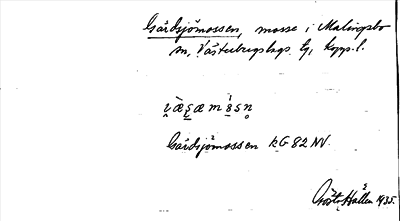 Gårdsjömossen, mosse i Malingsbo
sn, Västerbergslags tg, Kopp. l.
Gårdsjömossen kG 82 NV.
Gösta Hållén 1935.